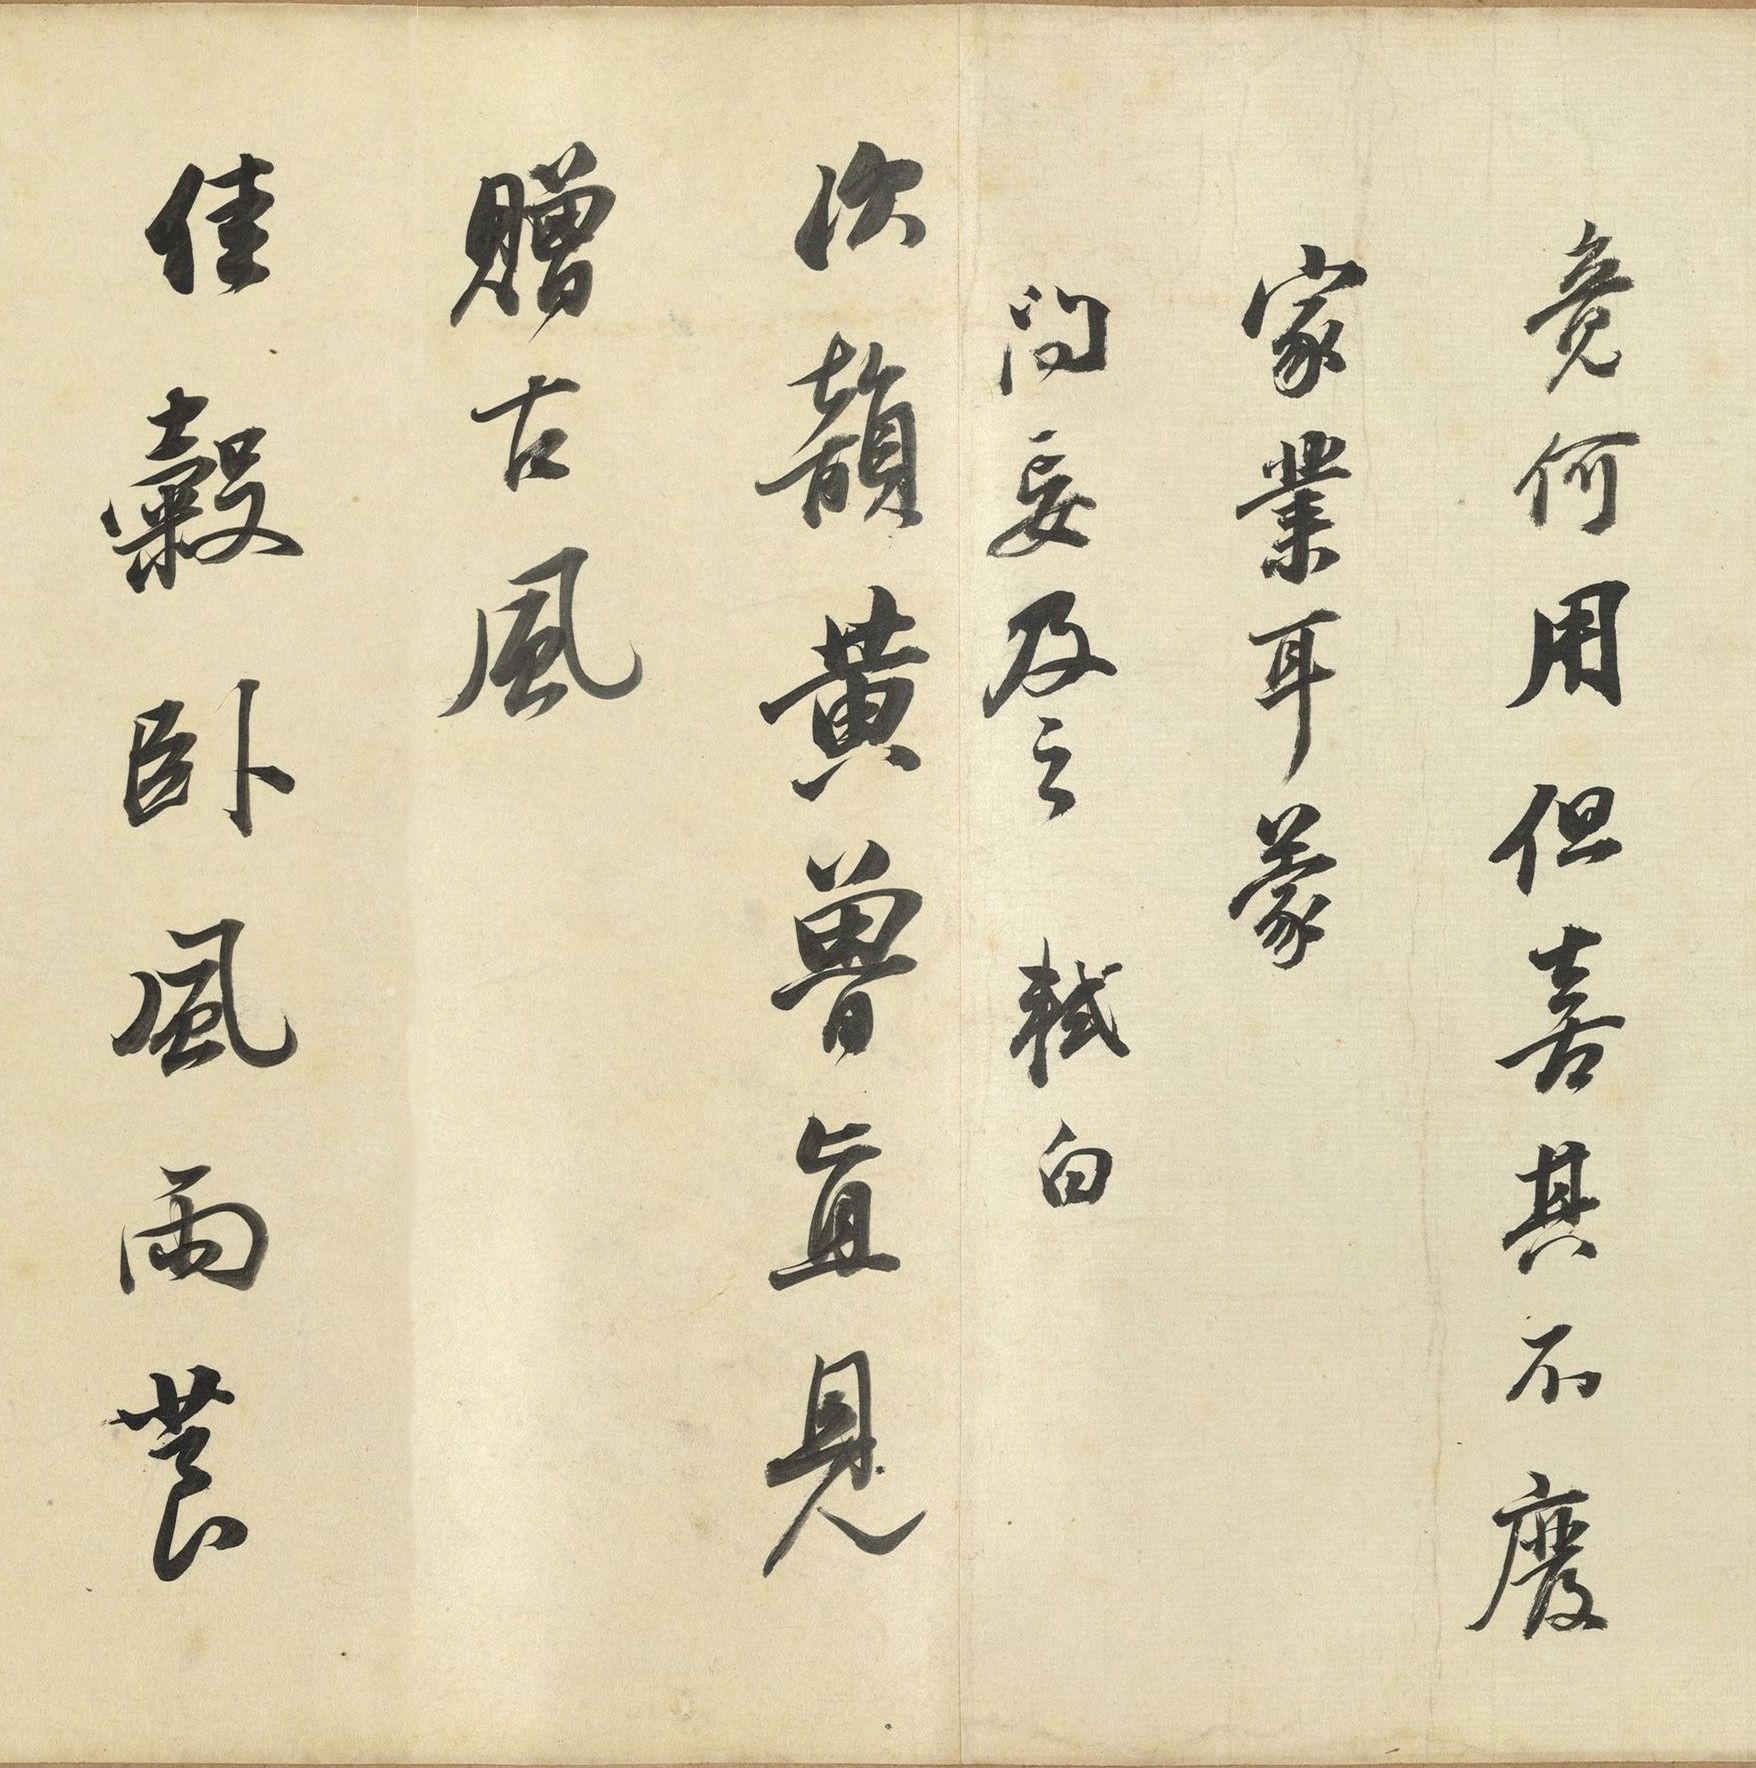 竟何用但喜其不廢
家業耳蒙
問妄及之 軾白
次韻黃魯直見
贈古風
佳穀臥風雨莨